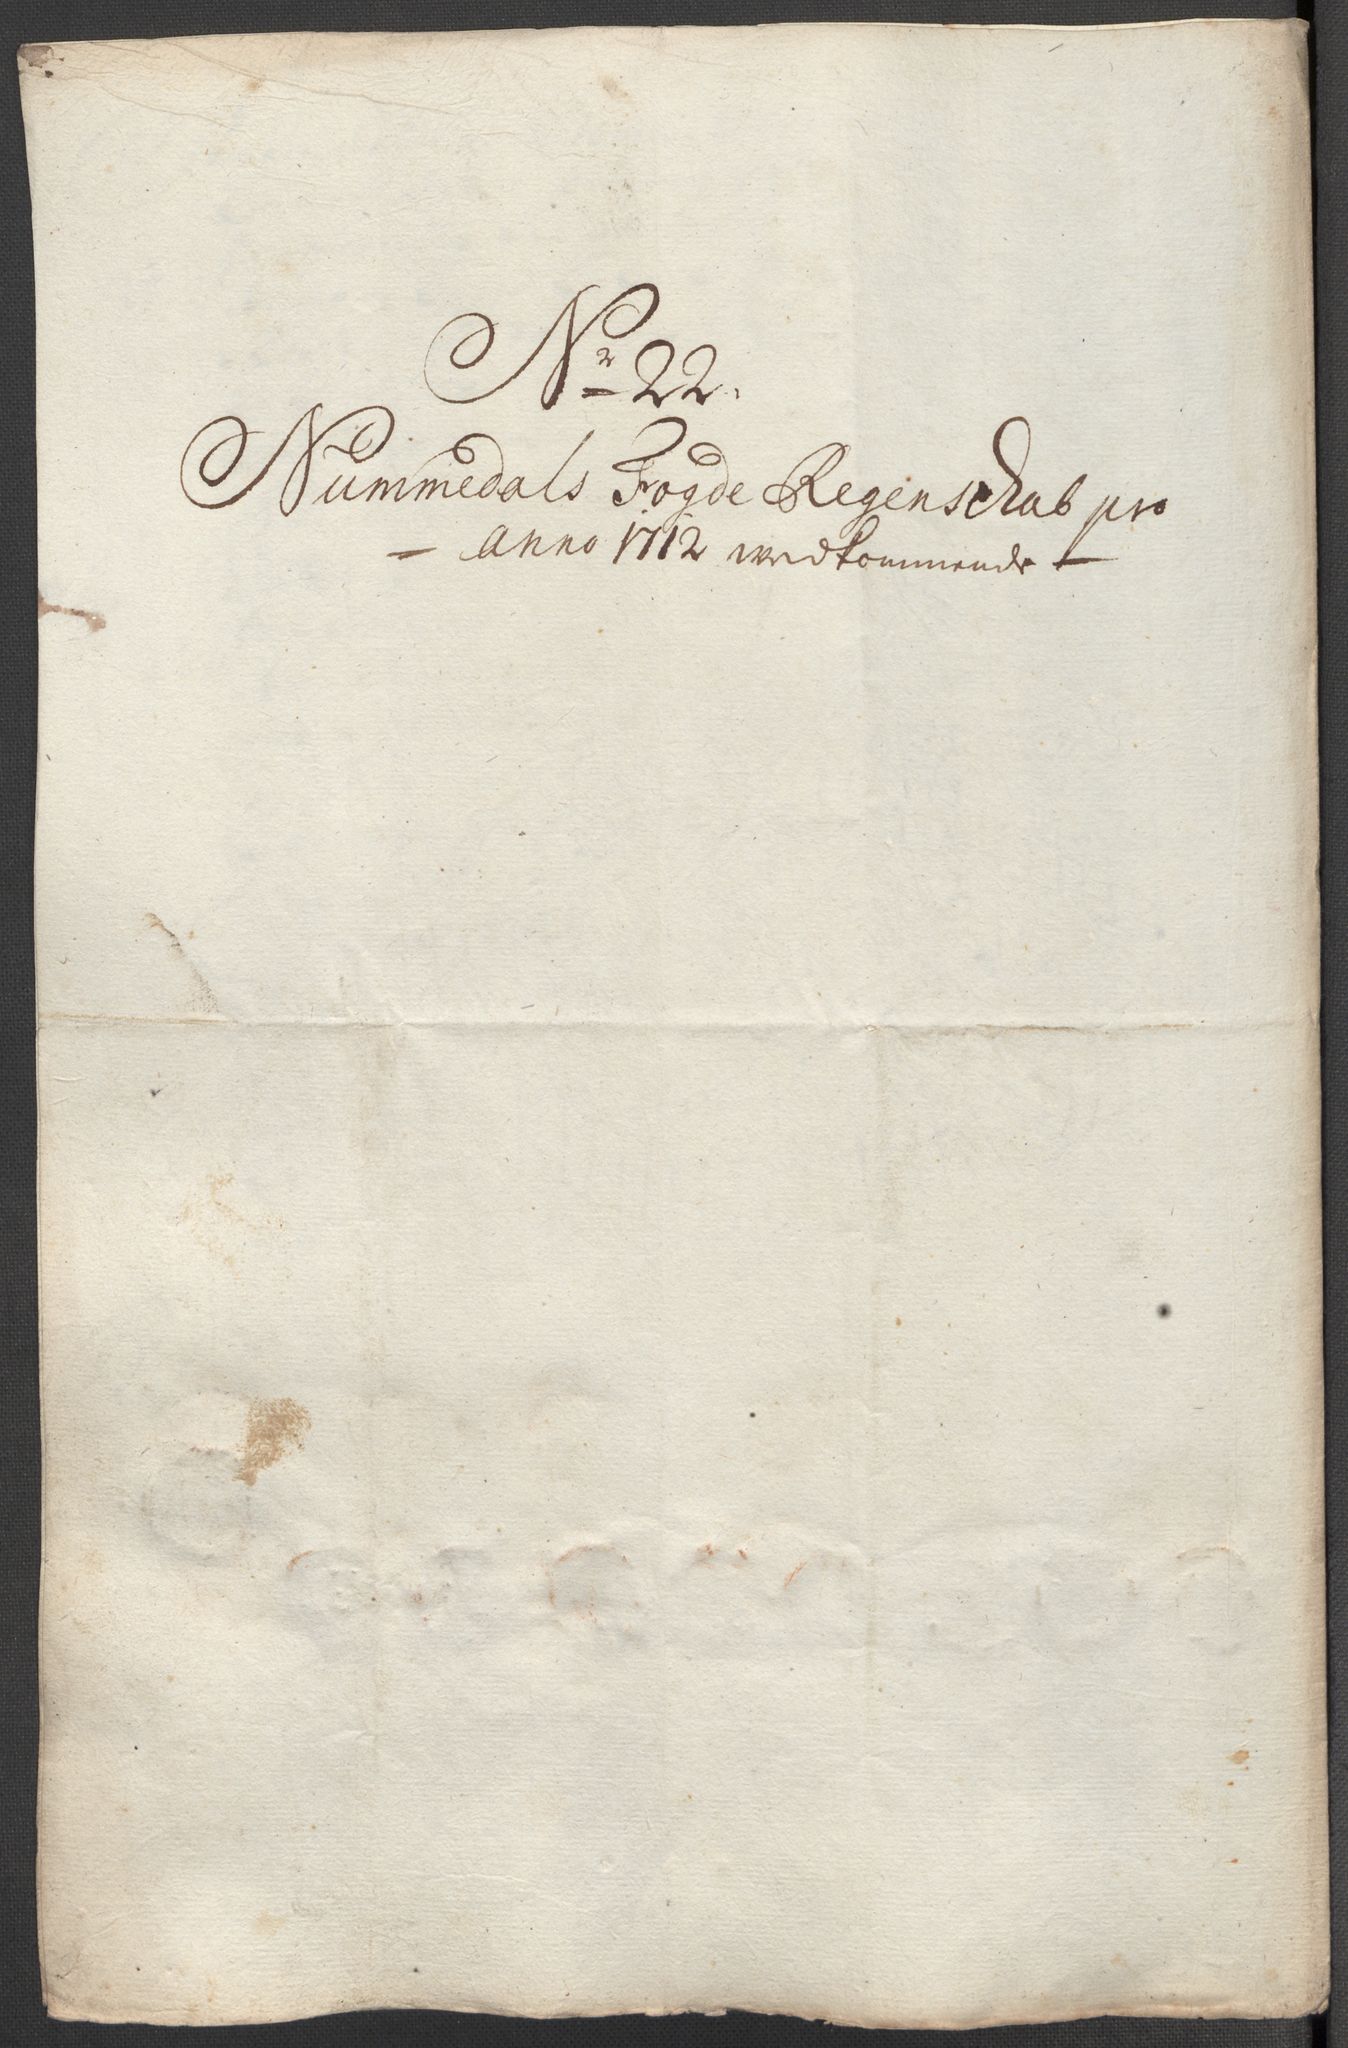 Nr 22.
Nummedals Fogde Regenskab pro
Anno 1712 wedkommende